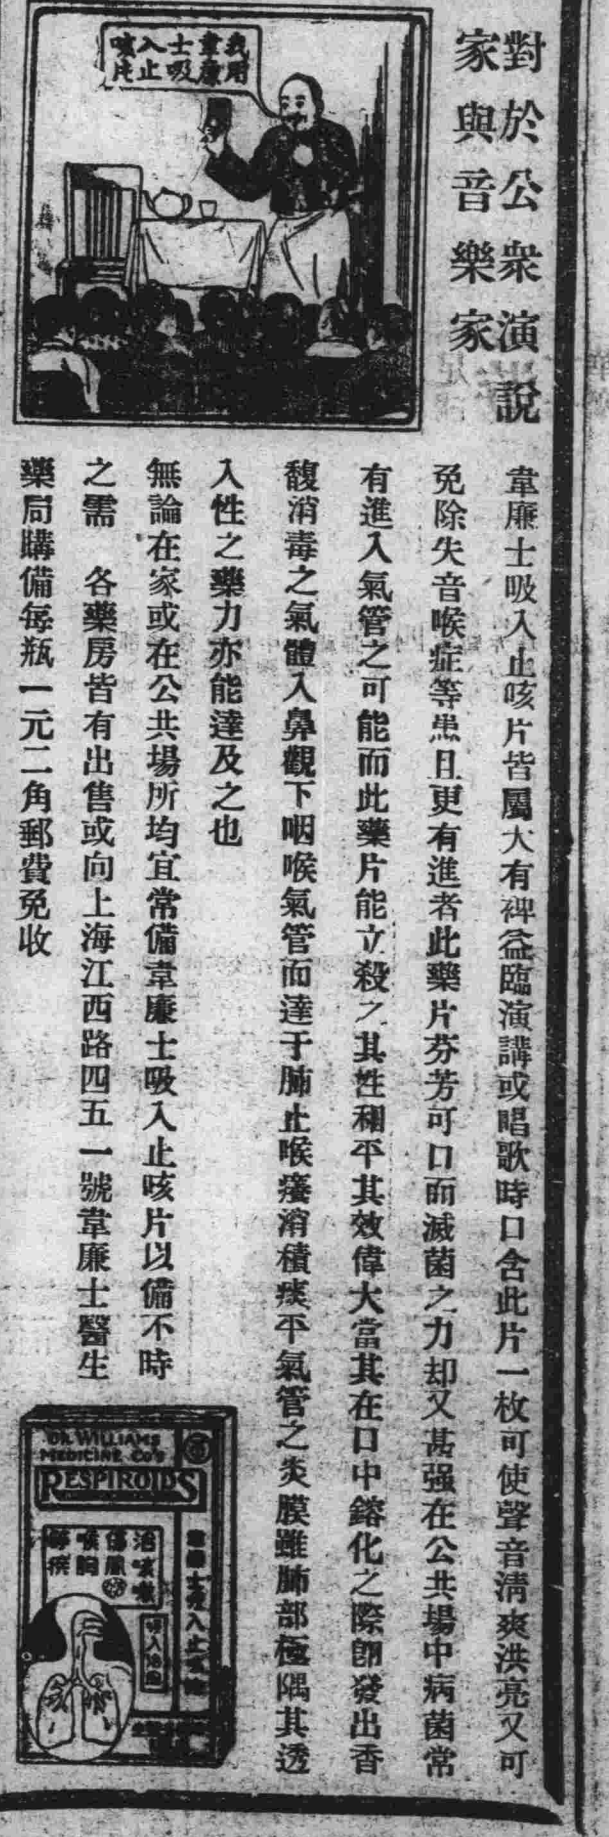 對於公衆演說
家與音樂家
我用
韋廉
士吸
入止
咳片
韋廉士吸入止咳片皆屬大有裨益臨演講或唱歌時口含此片一枚可使聲音淸爽洪亮又可
免除失音喉症等患且更有進者此藥片芬芳可口而滅菌之力却又甚强在公共場中病菌常
有進入氣管之可能而此藥片能立殺之其性和平其效偉大當其在口中鎔化之際卽發出香
馥消毒之氣體入鼻觀下咽喉氣管而達于肺止喉癢消積痰平氣管之炎膜雖肺部極隅其透
入性之藥力亦能達及之也
無論在家或在公共場所均宜常備韋廉士吸入止咳片以備不時
之需 各藥房皆有出售或向上海江西路四五一號韋廉士醫生
藥局購備每瓶一元二角郵費免收
DR. WILLIAMS
MEDICINE CO'S
RESPIROIDS
治咳嗽
傷風
喉痛